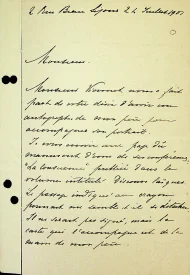 2 Rue Beau Séjour 24 Juillet 1901
Monsieur
Monsieur nous a fait
part de votre désir d'avoir un
autographe de mon père pour
accompagner son portrait.
Je vous envoie une page du
manuscrit d'une de ses conférences,
publiée dans le
volume intitulé Discours laïques.
Le passage indiqué au crayon
pourrait me semble-t-il se détacher
Il ne serait pas signé, mais la
carte qui l'accompagne est de la
main de mon père.